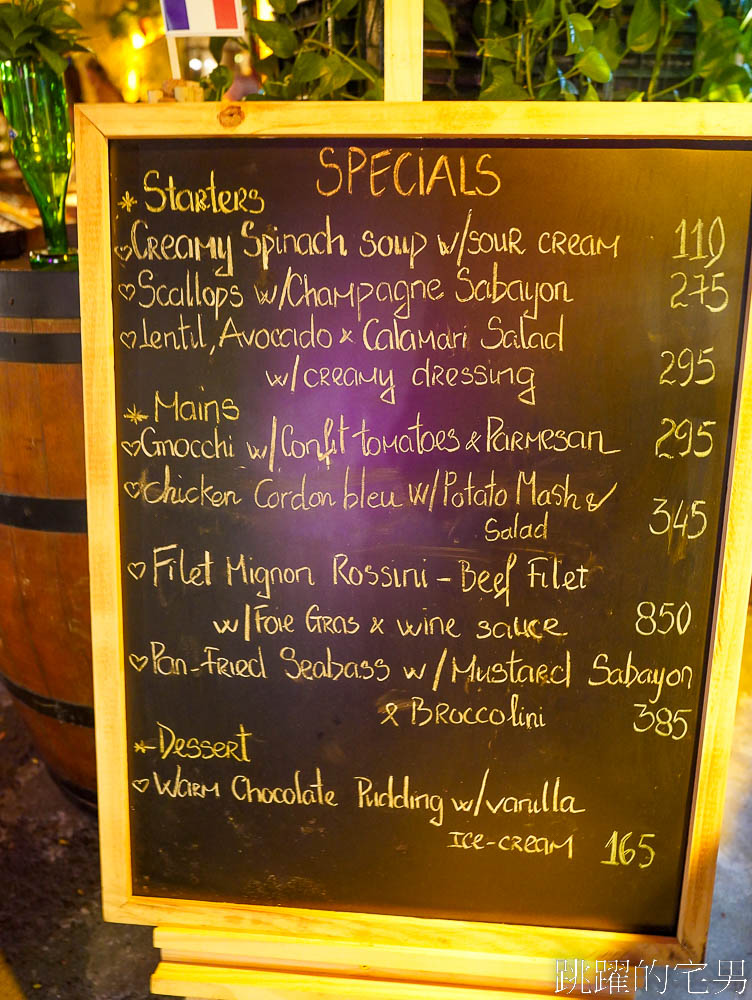 SPECIALS
* Starters
♡ Creamy Spinach soup w/sour cream 110
♡ Scallops w/Champagne Sabayon 275
♡ Lentil, Avocado & Calamari Salad
w/creamy dressing 295
* Mains
♡ Gnocchi w/Confit tomatoes & Parmesan 295
♡ Chicken Cordon bleu w/Potato Mash &
Salad 345
♡ Filet Mignon Rossini - Beef Filet
w/Foie Gras & wine sauce 850
♡ Pan-Fried Seabass w/Mustard Sabayon
& Broccolini 385
* Dessert
♡ Warm Chocolate Pudding w/vanilla
Ice-cream 165
跳躍的宅男